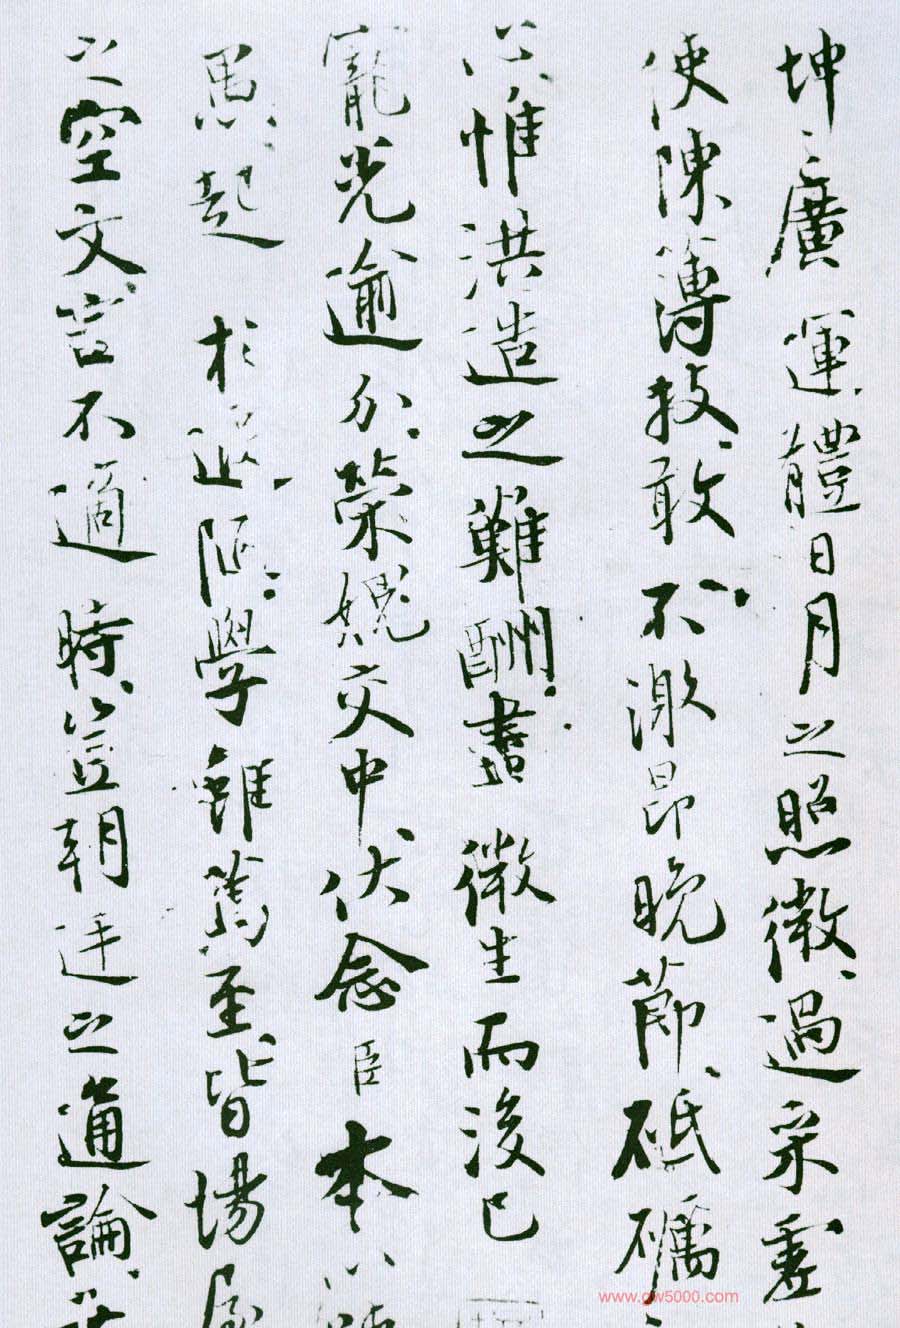 坤之廣運體日月之照微過采虛
使陳薄技敢不激昂晚節砥礪
心惟洪造之難酬盡微生而後已
寵光逾分榮媿交中伏念臣本以
愚起於遐陬學雖篤至皆場屋
之空文言不適時豈朝廷之通論
www.gw5000.com